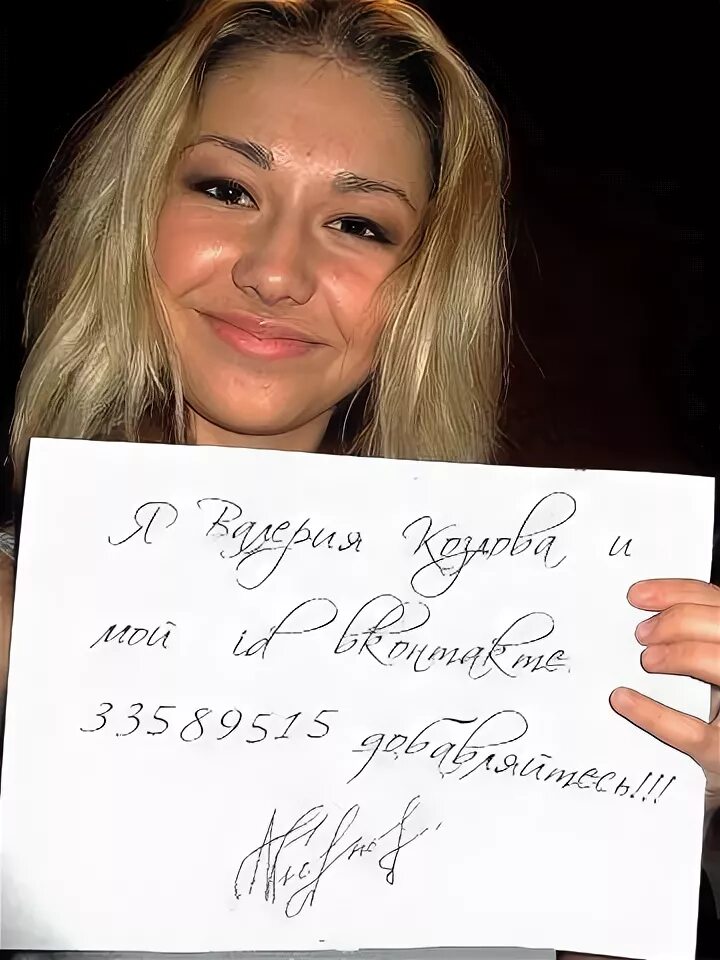 Я Валерия Козлова и
мой id вконтакте
33589515 добавляйтесь!!!